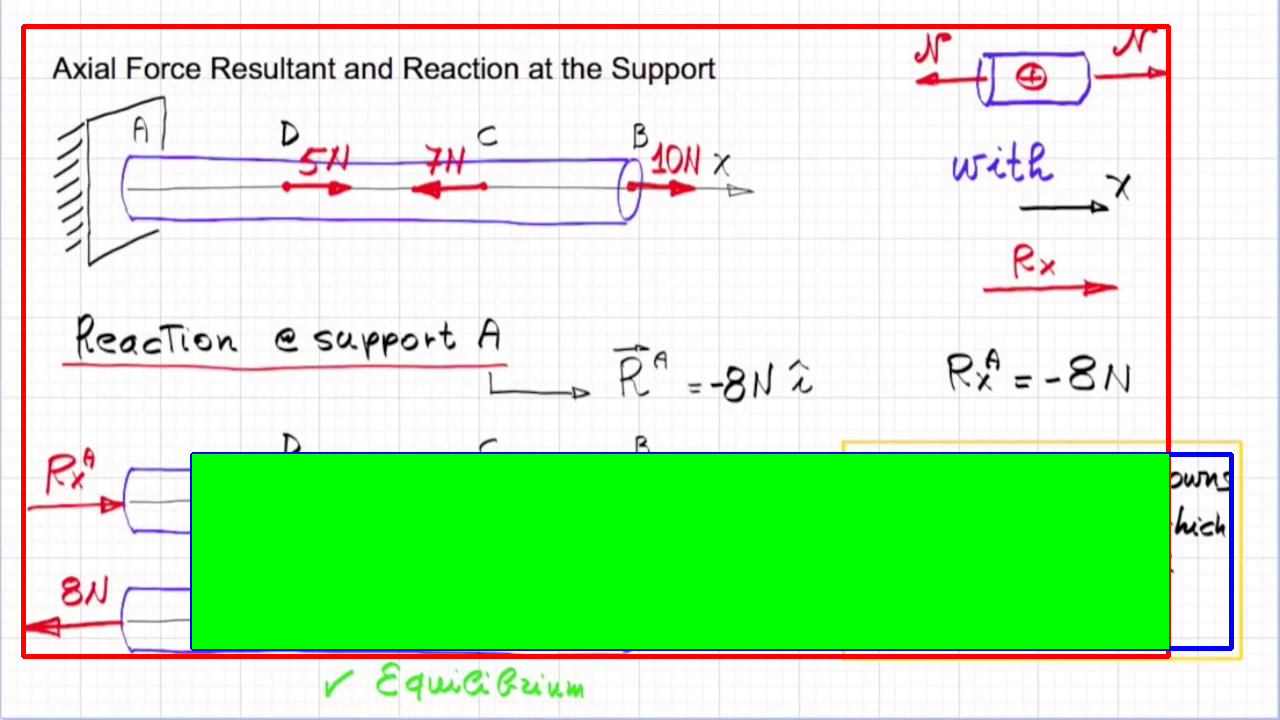 Axial Force Resultant and Reaction at the Support
N N
A D C B
5N 7N 10N X
with
x
Rx
Reaction @ support A
R A = -8N î
RxA = -8N
RxA
8N
✓ Equilibrium